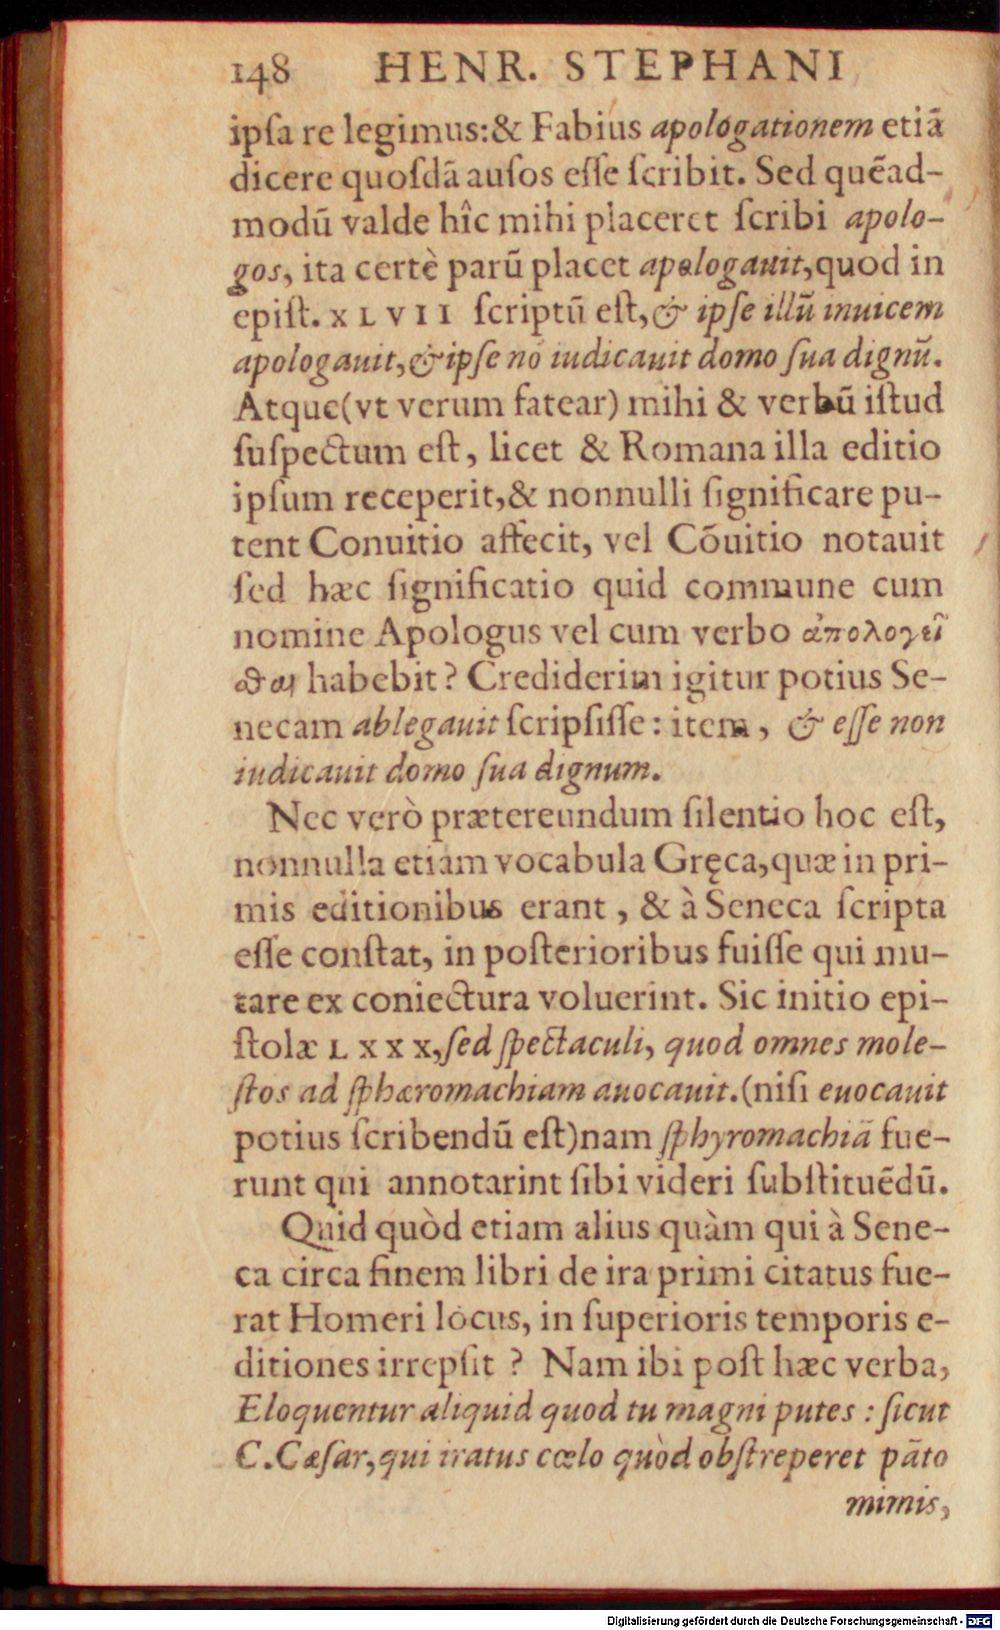 148 HENR. STEPHANI
ipſa re legimus:& Fabius apologationem etiā
dicere quoſdā auſos eſſe ſcribit. Sed quēad-
modū valde hîc mihi placeret ſcribi apolo-
gos, ita certè parū placet apologauit,quod in
epiſt. XLVII ſcriptū eſt,& ipſe illū inuicem
apologauit,& ipſe nō iudicauit domo ſua dignū.
Atque(vt verum fatear) mihi & verbū iſtud
ſuſpectum eſt, licet & Romana illa editio
ipſum receperit,& nonnulli ſignificare pu-
tent Conuitio affecit, vel Cōuitio notauit
ſed hæc ſignificatio quid commune cum
nomine Apologus vel cum verbo ἀπολογεῖ
σθαι habebit? Crediderim igitur potius Se-
necam ablegauit ſcripſiſſe: item, & eſſe non
iudicauit domo ſua dignum.
Nec verò prætereundum ſilentio hoc eſt,
nonnulla etiam vocabula Gręca,quæ in pri-
mis editionibus erant, & à Seneca ſcripta
eſſe conſtat, in poſterioribus fuiſſe qui mu-
tare ex coniectura voluerint. Sic initio epi-
ſtolæ LXXX,ſed ſpectaculi, quod omnes mole-
ſtos ad ſphæromachiam auocauit.(niſi euocauit
potius ſcribendū eſt)nam ſphyromachiā fue-
runt qui annotarint ſibi videri ſubſtituēdū.
Quid quòd etiam alius quàm qui à Sene-
ca circa finem libri de ira primi citatus fue-
rat Homeri locus, in ſuperioris temporis e-
ditiones irrepſit ? Nam ibi poſt hæc verba,
Eloquentur aliquid quod tu magni putes : ſicut
C.Cæſar,qui iratus cœlo quòd obſtreperet pāto
mimis,
Digitalisierung gefördert durch die Deutsche Forschungsgemeinschaft - DFG